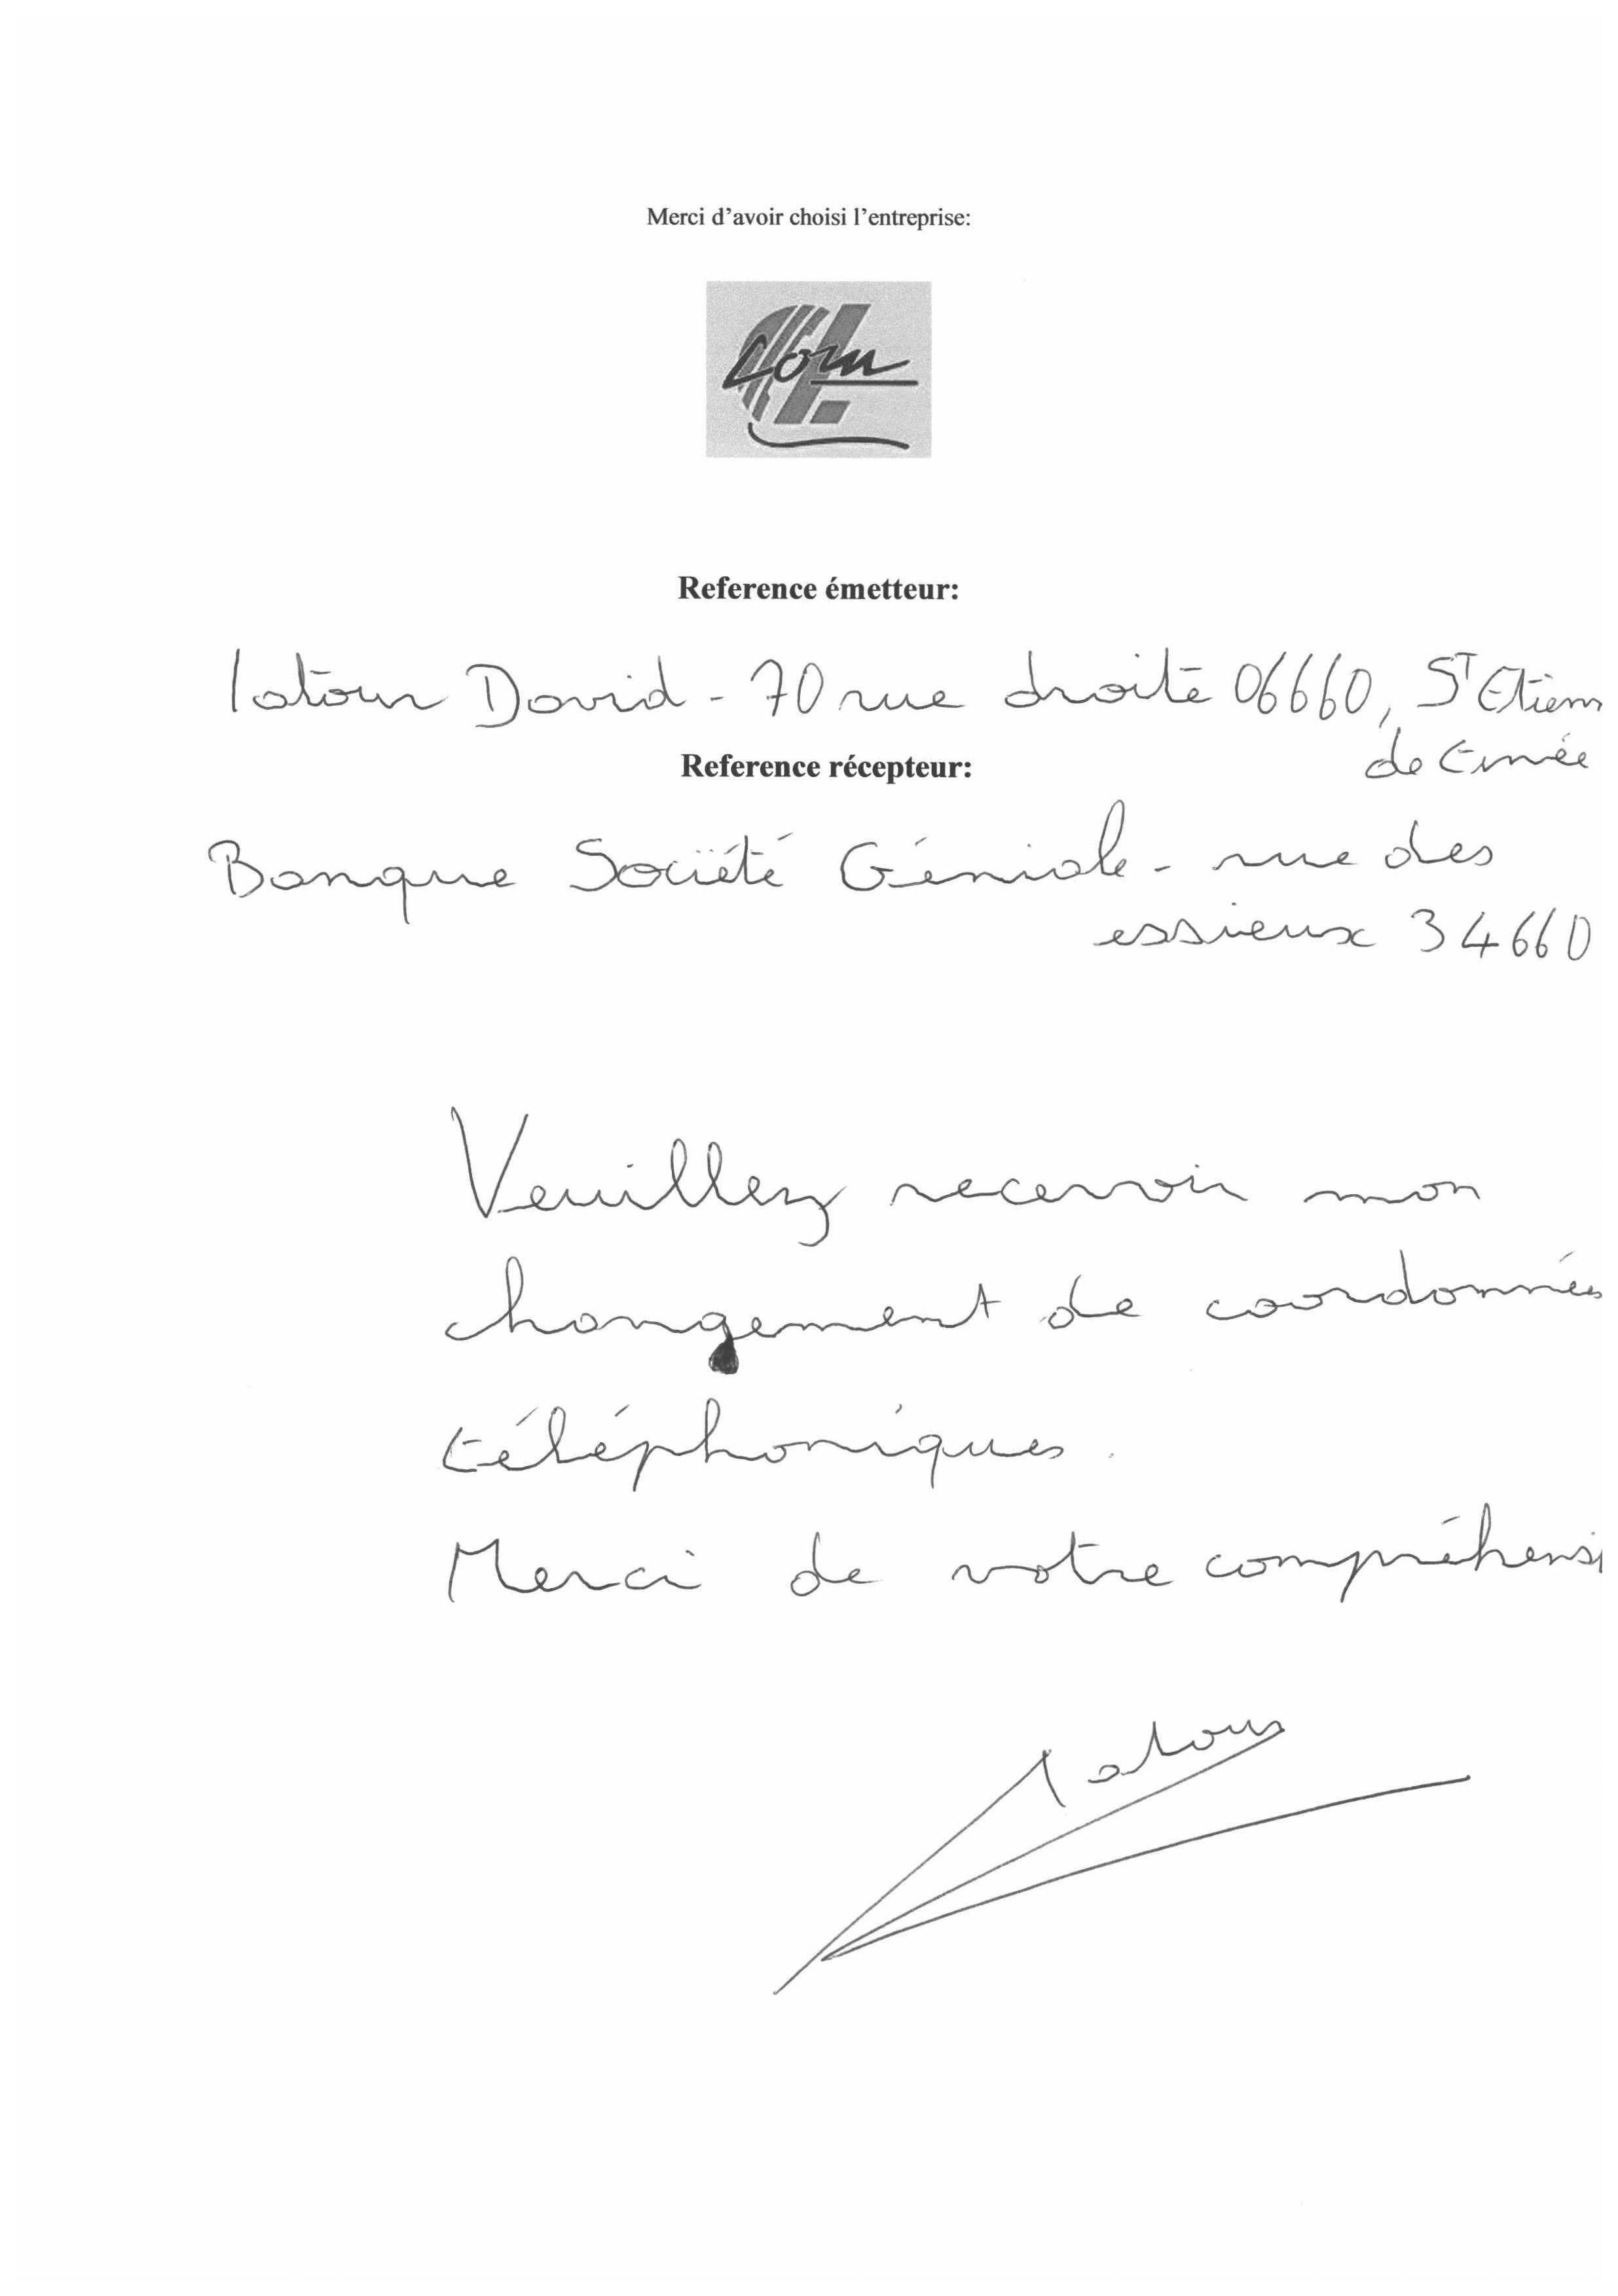 Merci d'avoir choisi l'entreprise:
Com
Reference émetteur:
latour David - 70 rue droite 06660, ST Etienn
de Tinée
Reference récepteur:
Banque Société Géniale - rue des
essieux 34660
Veuillez recevoir mon
changement de coordonnées
téléphoniques.
Merci de votre compréhensi
latour